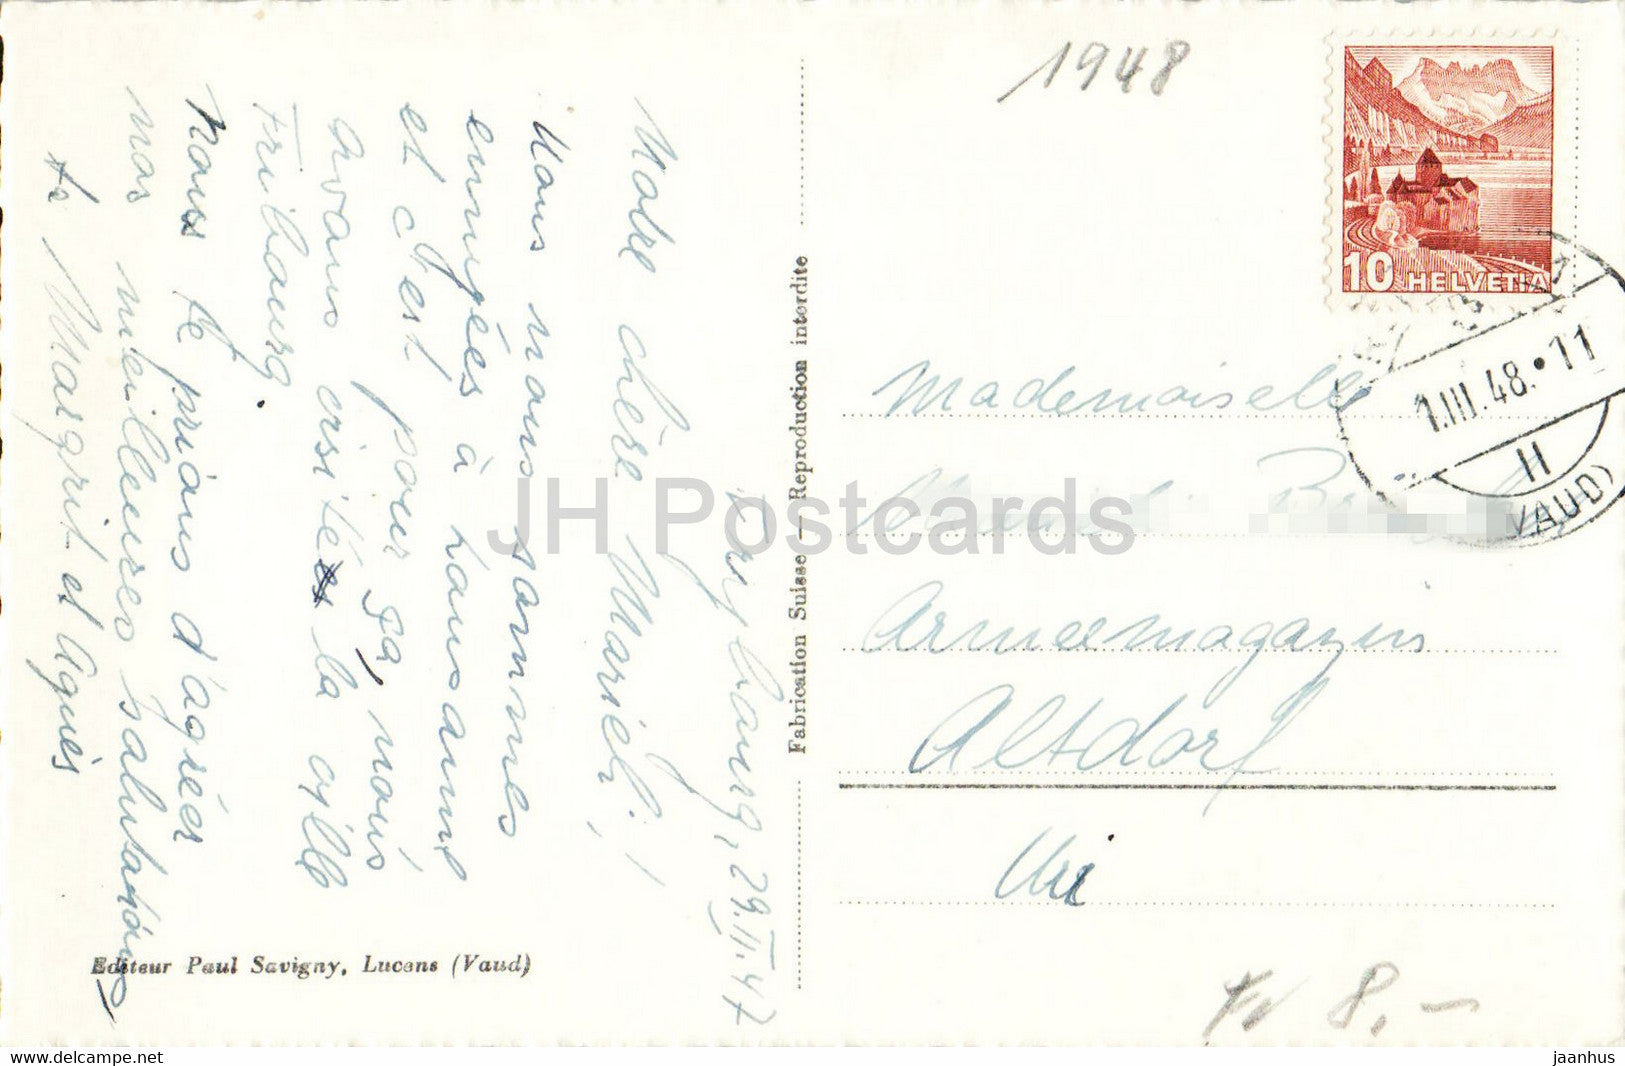 Frybourg, 29.II.47
Notre chère Marieli!,
Nous nous sommes
ennuyées à Lausanne
et c'est pour ça, nous
avons visité la ville
Fribourg.
Nous te prions d'agréer
nos meilleures salutations
ta Margrit et Agnès
Editeur Paul Savigny, Lucens (Vaud)
Fabrication Suisse — Reproduction interdite
1948
10 HELVETIA
1.III.48.•11
II
(VAUD)
Mademoiselle
Armeemagazin
Altdorf
Uri
Fr 8.–
JH Postcards
https://www.hippostcard.com/store/jaanhus